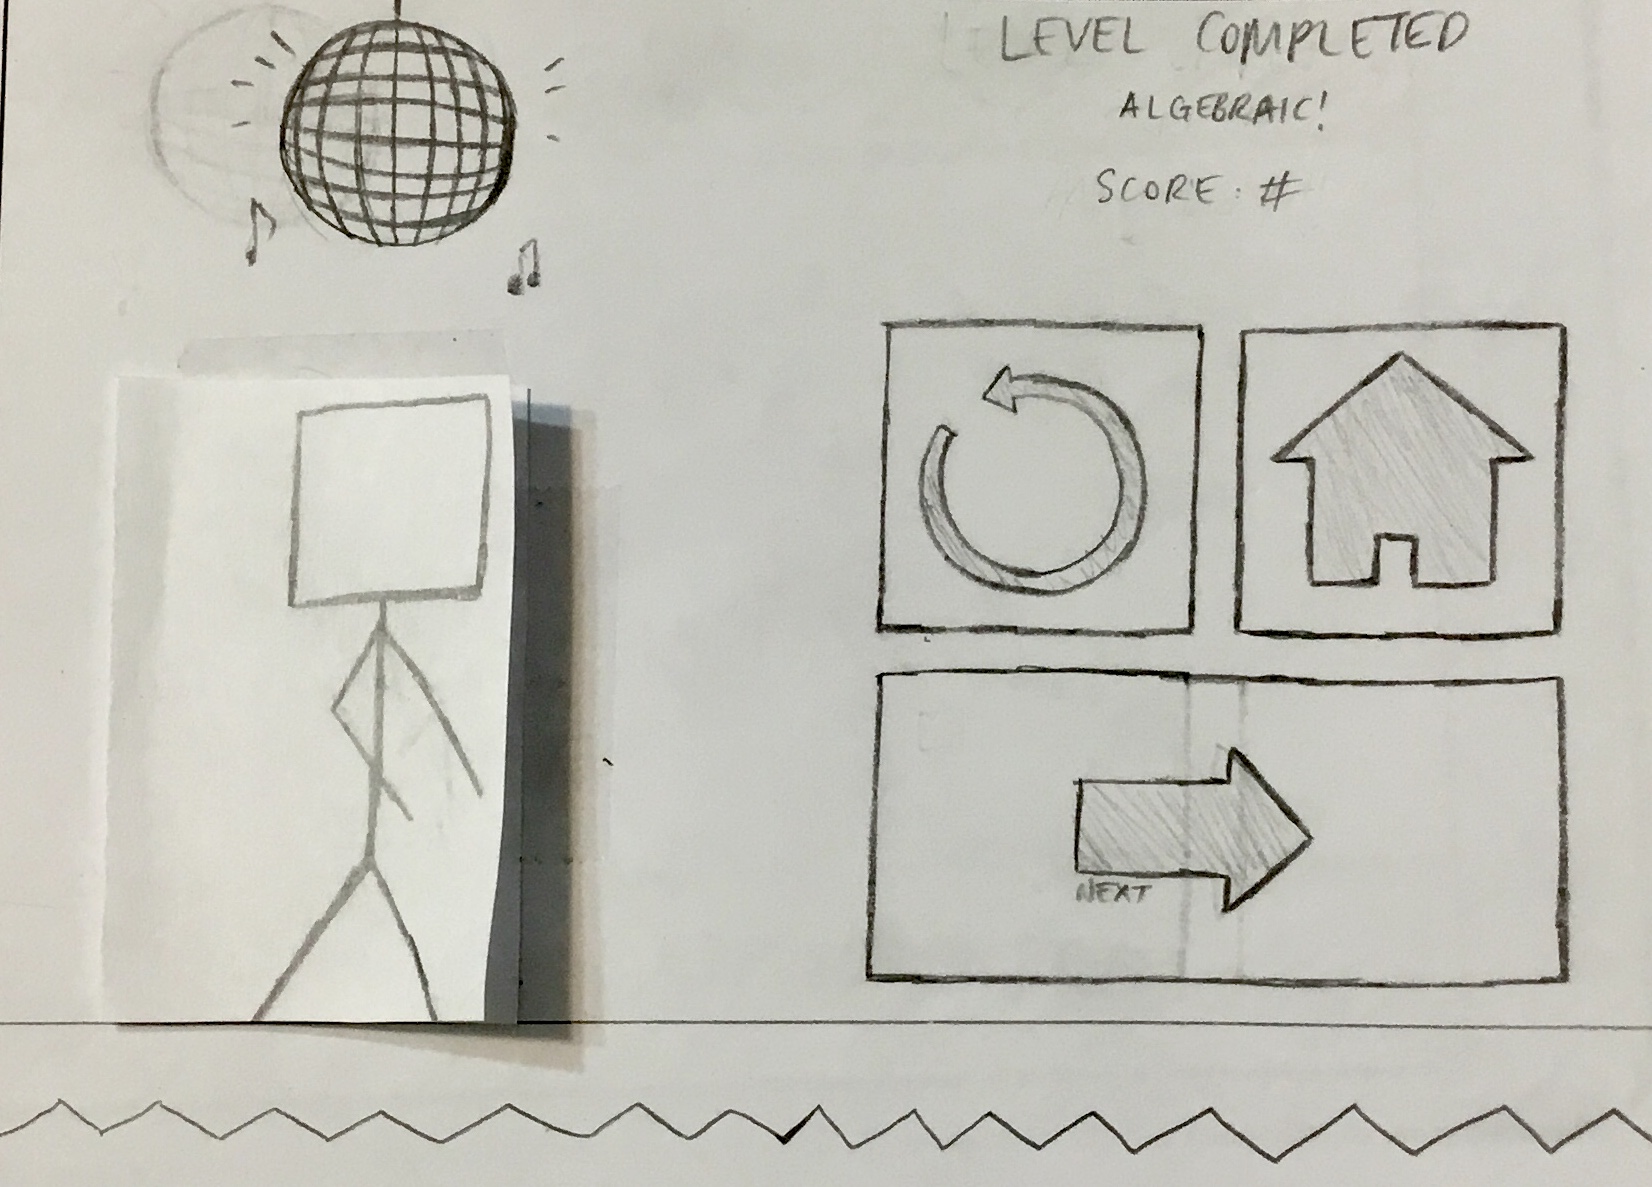 LEVEL COMPLETED
ALGEBRAIC!
SCORE: #
NEXT